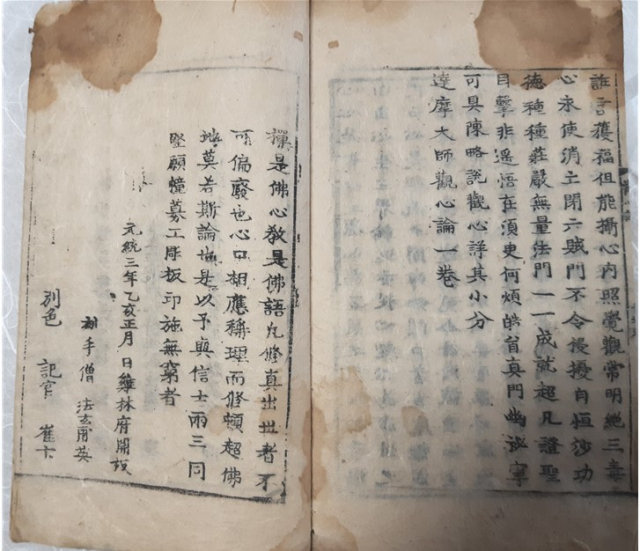 誰言獲福但能攝心內照覺觀常明絕三毒
心永使消亡閉六賊門不令侵擾自恒沙功
德種種莊嚴無量法門一一成就超凡證聖
目擊非遙悟在須臾何煩皓首真門幽泌寧
可具陳略說觀心詳其小分
達摩大師觀心論一卷
禪是佛心教是佛語凡修真出世者不
可偏廢也心口相應稱理而修頓超佛
地莫若斯論也是以予與信士兩三同
堅願幢募工彫板印施無窮者
元統三年乙亥正月 日雞林府開板
刻手僧 法玄 英
別色 記官 崔